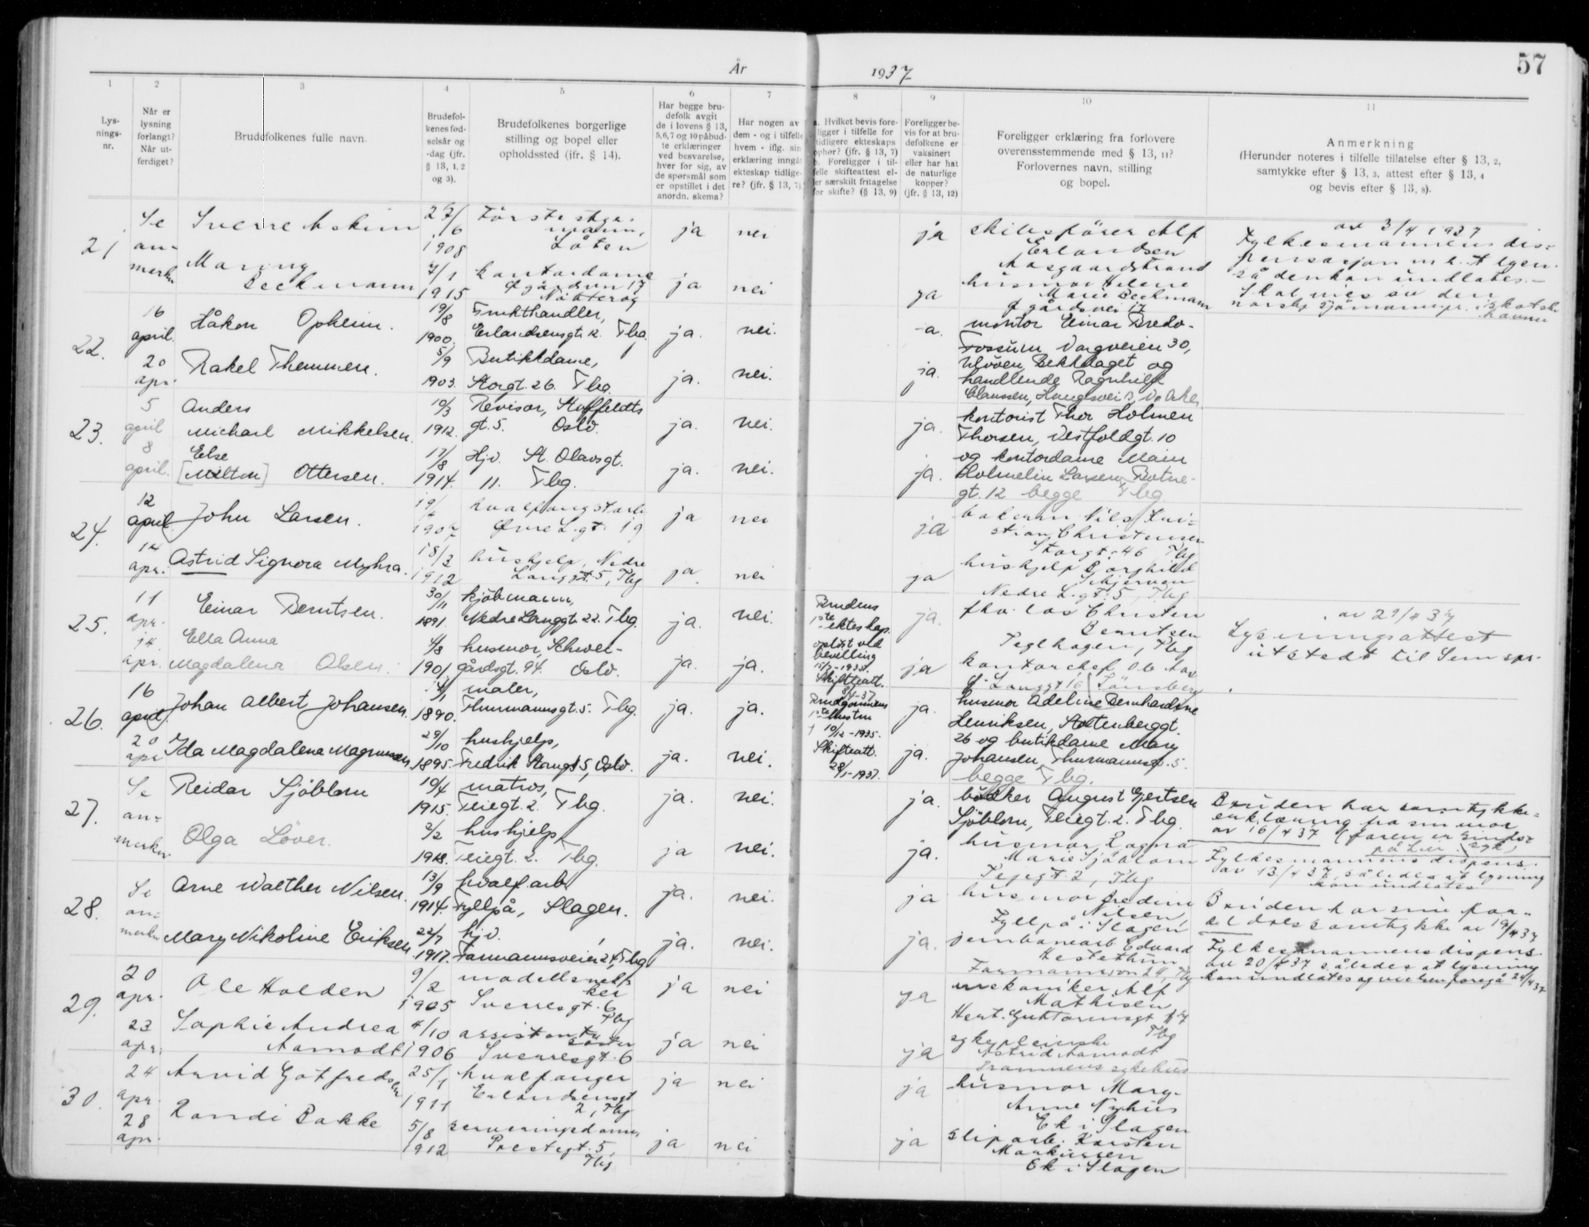 57
År 1937
1 2 3 4 5 6 7 8 9 10 11
Lys-
nings-
nr.
Når er
lysning
forlangt?
Når ut-
ferdiget?
Brudefolkenes fulle navn.
Brudefol-
kenes fød-
selsår og
-dag (jfr.
§ 13, 1, 2
og 3).
Brudefolkenes borgerlige
stilling og bopel eller
opholdssted (ifr. § 14).
Har begge bru-
defolk avgit
de i lovens § 13,
5,6,7 og 10 påbud-
te erklæringer
ved besvarelse,
hver for sig, av
de spørsmål som
er opstillet i det
anordn. skema?
Har nogen av
dem - og i tilfelle
hvem - iflg. sin
erklæring inngåt
ekteskap tidlige-
re? (jfr. § 13, 7)
a. Hvilket bevis fore-
ligger i tilfelle for
tidligere ekteskaps
ophør? (§ 13, 7)
b. Foreligger i til-
felle skifteattest el-
ler særskilt fritagelse
for skifte? (§ 13, 9)
Foreligger be-
vis for at bru-
defolkene er
vaksinert
eller har hat
de naturlige
kopper?
(jfr. § 13, 12)
Foreligger erklæring fra forlovere
overensstemmende med § 13, 11?
Forlovernes navn, stilling
og bopel.
Anmerkning
(Herunder noteres i tilfelle tillatelse efter § 13, 2,
samtykke efter § 13, 3, attest efter § 13, 4
og bevis efter § 13, 8).
21
Se
an-
merkn
Sverre Askim
27/6
1908
Første styr-
mann,
Løten
ja nei
ja
skibsfører Alf
Erlandsen
Aasgaardstrand
av 3/4 1937
Fylkesmannens dis-
pensasjon m.h.t. lysn.
så den kan undlates.-
Skal vies av den
norske sjømannspr. i skotske
havner
Mariny
Beckmann
4/1
1915
kontordame
Øgårdsvn 17
Nøtterøy
ja nei
ja
husmor Helene
Marie Beckmann
Øgårdsvei 17
22.
16
april.
Håkon Opheim.
19/8
1900.
Frukthandler,
Erlandsensgt. 12. Tbg.
ja. nei.
-a.
montør Einar Bredo-
Fossum Vargveien 30,
20
apr.
Rakel Themmen.
5/9
1903.
Butikkdame,
Storgt. 26. Tbg.
ja. nei.
ja.
Ulvøen Bekkelaget og
handlende Ragnhild
Clausen, Haugsvei 13, V. Aker,
23.
5
april
Anders
Michael Mikkelsen.
10/3
1912.
Revisor, Stoffeldts
gt. 5. Oslo.
ja. nei.
ja.
kontorist Thor Holmen
Thorsen, Vestfoldgt. 10
8
april.
Else
[Milton] Ottersen.
17/8
1914.
Hjv. St. Olavsgt.
11. Tbg.
ja. nei.
ja.
og kontordame Main
Holmelin Larsen, Botne-
gt. 12 begge Tbg
24.
12
april
John Larsen.
19/
1907
hvalfangstarb.
Øvre L.gt. 19
ja nei
ja
bokerm Nils Kri-
stian Christensen
Storgt. 46, Tbg
14
apr.
Astrid Signora Myhra.
15/3
1912
hushjelp, Nedre
Langgt. 5, Tbg
ja nei
ja
hushjelp Borghild
Skjerven
Nedre L.gt. 5, Tbg
25.
11
apr.
Einar Berntsen.
30/11
1891
kjøbmann,
Nedre Langgt. 22. Tbg.
ja. nei.
Brudens
1ste
ekteskap
opløst ved
bevilling
Skifteatt.
ja.
fhv. los Christen
Berntsen
Teglhagen, Tbg
av 29/4 37
Lysningsattest
utstedt til Sem spr.
14
apr.
Ella Anna
Magdalena Olsen.
4/8
1901
husmor, Schwei-
gårdsgt. 94. Oslo.
ja. ja.
ja
kontorchef Ole Aas
Ø. Langgt. 16 Tønsberg
26.
16
april.
Johan Albert Johansen.
1890.
maler,
Thurmannsgt. 5. Tbg.
ja. ja.
Brudgommens
1ste hustru
† 19/12-1935.
Skifteatt.
28/1-1937.
ja.
husmor Adeline Bernhardine
Henriksen, Stoltenberggt.
20
apr
Ida Magdalena Magnussen
29/10
1895.
hushjelp,
Fredrik Stangsgt. 5, Oslo.
ja. nei.
ja.
26 og butikdame Mary
Johansen, Thurmannsgt. 5.
begge Tbg.
27.
Se
an-
merkn
Reidar Sjöblom
10/4
1915.
matros,
Teiegt. 2. Tbg.
ja. nei.
ja.
bøkker August Gjertsen
Sjöblom, Teiegt. 2. Tbg.
Bruden har samtykke-
erklæring fra sin mor
av 16/4 37 (faren er sinds-
syk)
Olga Løver.
2/2
1918.
hushjelp,
Teiegt. 2. Tbg.
ja nei.
ja.
husmor Ragna
Marie Sjöblom
Teiegt 2, Tbg
Fylkesmannens dispens.
av 13/4 37 således at lysning
kan undlates
28.
Se
an-
merkn
Arne Walther Nilsen.
13/9
1914.
hvalf.arb.
Fyllpå, Slagen.
ja. nei.
ja
husmor Fredine
Nilsen,
Fyllpå i Slagen
Bruden har sine for-
eldres samtykke av 19/4 37
Mary Nikoline Eriksen
22/7
1917.
hjv.
Farmannsveien 24, Tbg
ja. nei.
ja.
jernbanearb Edvard
Hestethun
Farmannsvn 24, Tbg
Fylkesmannens dispens.
av 20/4 37 således at lysning
kan undlates og vielsen foregå 24/4 37
29.
20
apr.
Ole Holden
9/2
1905
modellsnek-
ker
Sverresgt. 6
Tbg
ja nei
ja
mekaniker Alf
Mathisen
Hert. Guttormsgt 7
Tbg
23
apr.
Sophie Andrea
Aamodt
4/10
1906
assistent
Sverresgt. 6
ja nei
ja
sykepleierske
Astrid Aamodt
Drammens sykehus
30.
24
apr.
Arvid Gotfredsen
25/1
1911
hvalfanger
Erlandsensgt
2, Tbg
ja nei
ja
husmor Marg-
Anne Nyhus
Ek i Slagen
28
apr.
Randi Bakke
5/8
1912
serveringsdame,
Prestegt. 5,
Tbg
ja nei
ja
sliparb. Karsten
Markussen
Ek i Slagen